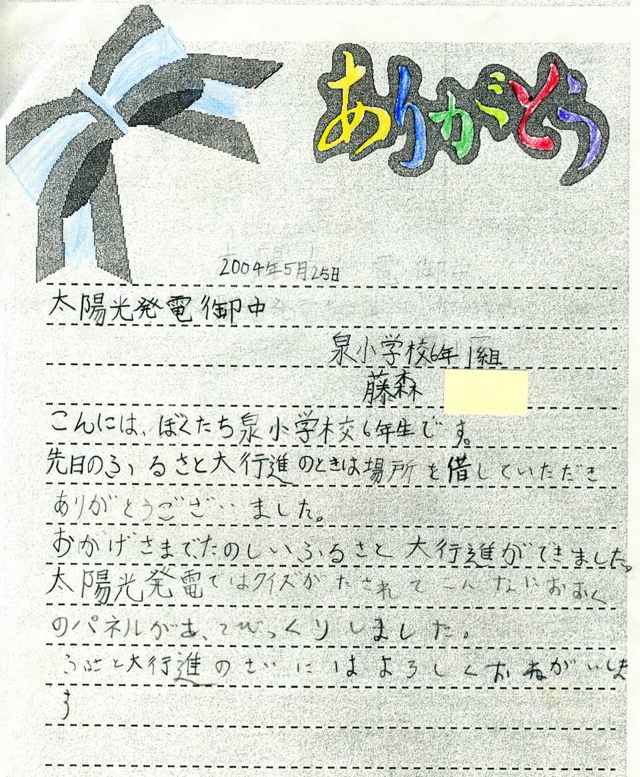 ありがとう
2004年5月25日
太陽光発電御中
泉小学校6年1組
藤森
こんには、ぼくたち泉小学校6年生です。
先日のふるさと大行進のときは場所を借していただき
ありがとうございました。
おかげさまでたのしいふるさと大行進ができました。
太陽光発電ではクイズがだされてこんなにおおく
のパネルがあってびっくりしました。
ふるさと大行進のさいにはよろしくおねがいしま
す